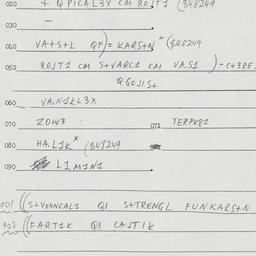 020 + QPICAL3Y CM ROJT1 ($48249
030 —
040 VA+S+L QF) = KARS+N + ($48249
050 ROJT1 CM S+VARC1 CM VA.S1 ) - C+3RE.
QGOJIS+
060 VA.N1KL3X
070 ZOW3 073 TERPK81
080 HA.L1K x ($48249
090 L1M1N1
901 ((S+VX4NCAL1 QI S+TRENGL FUNKARS+N
902 ((FART1K QI CAJTIK